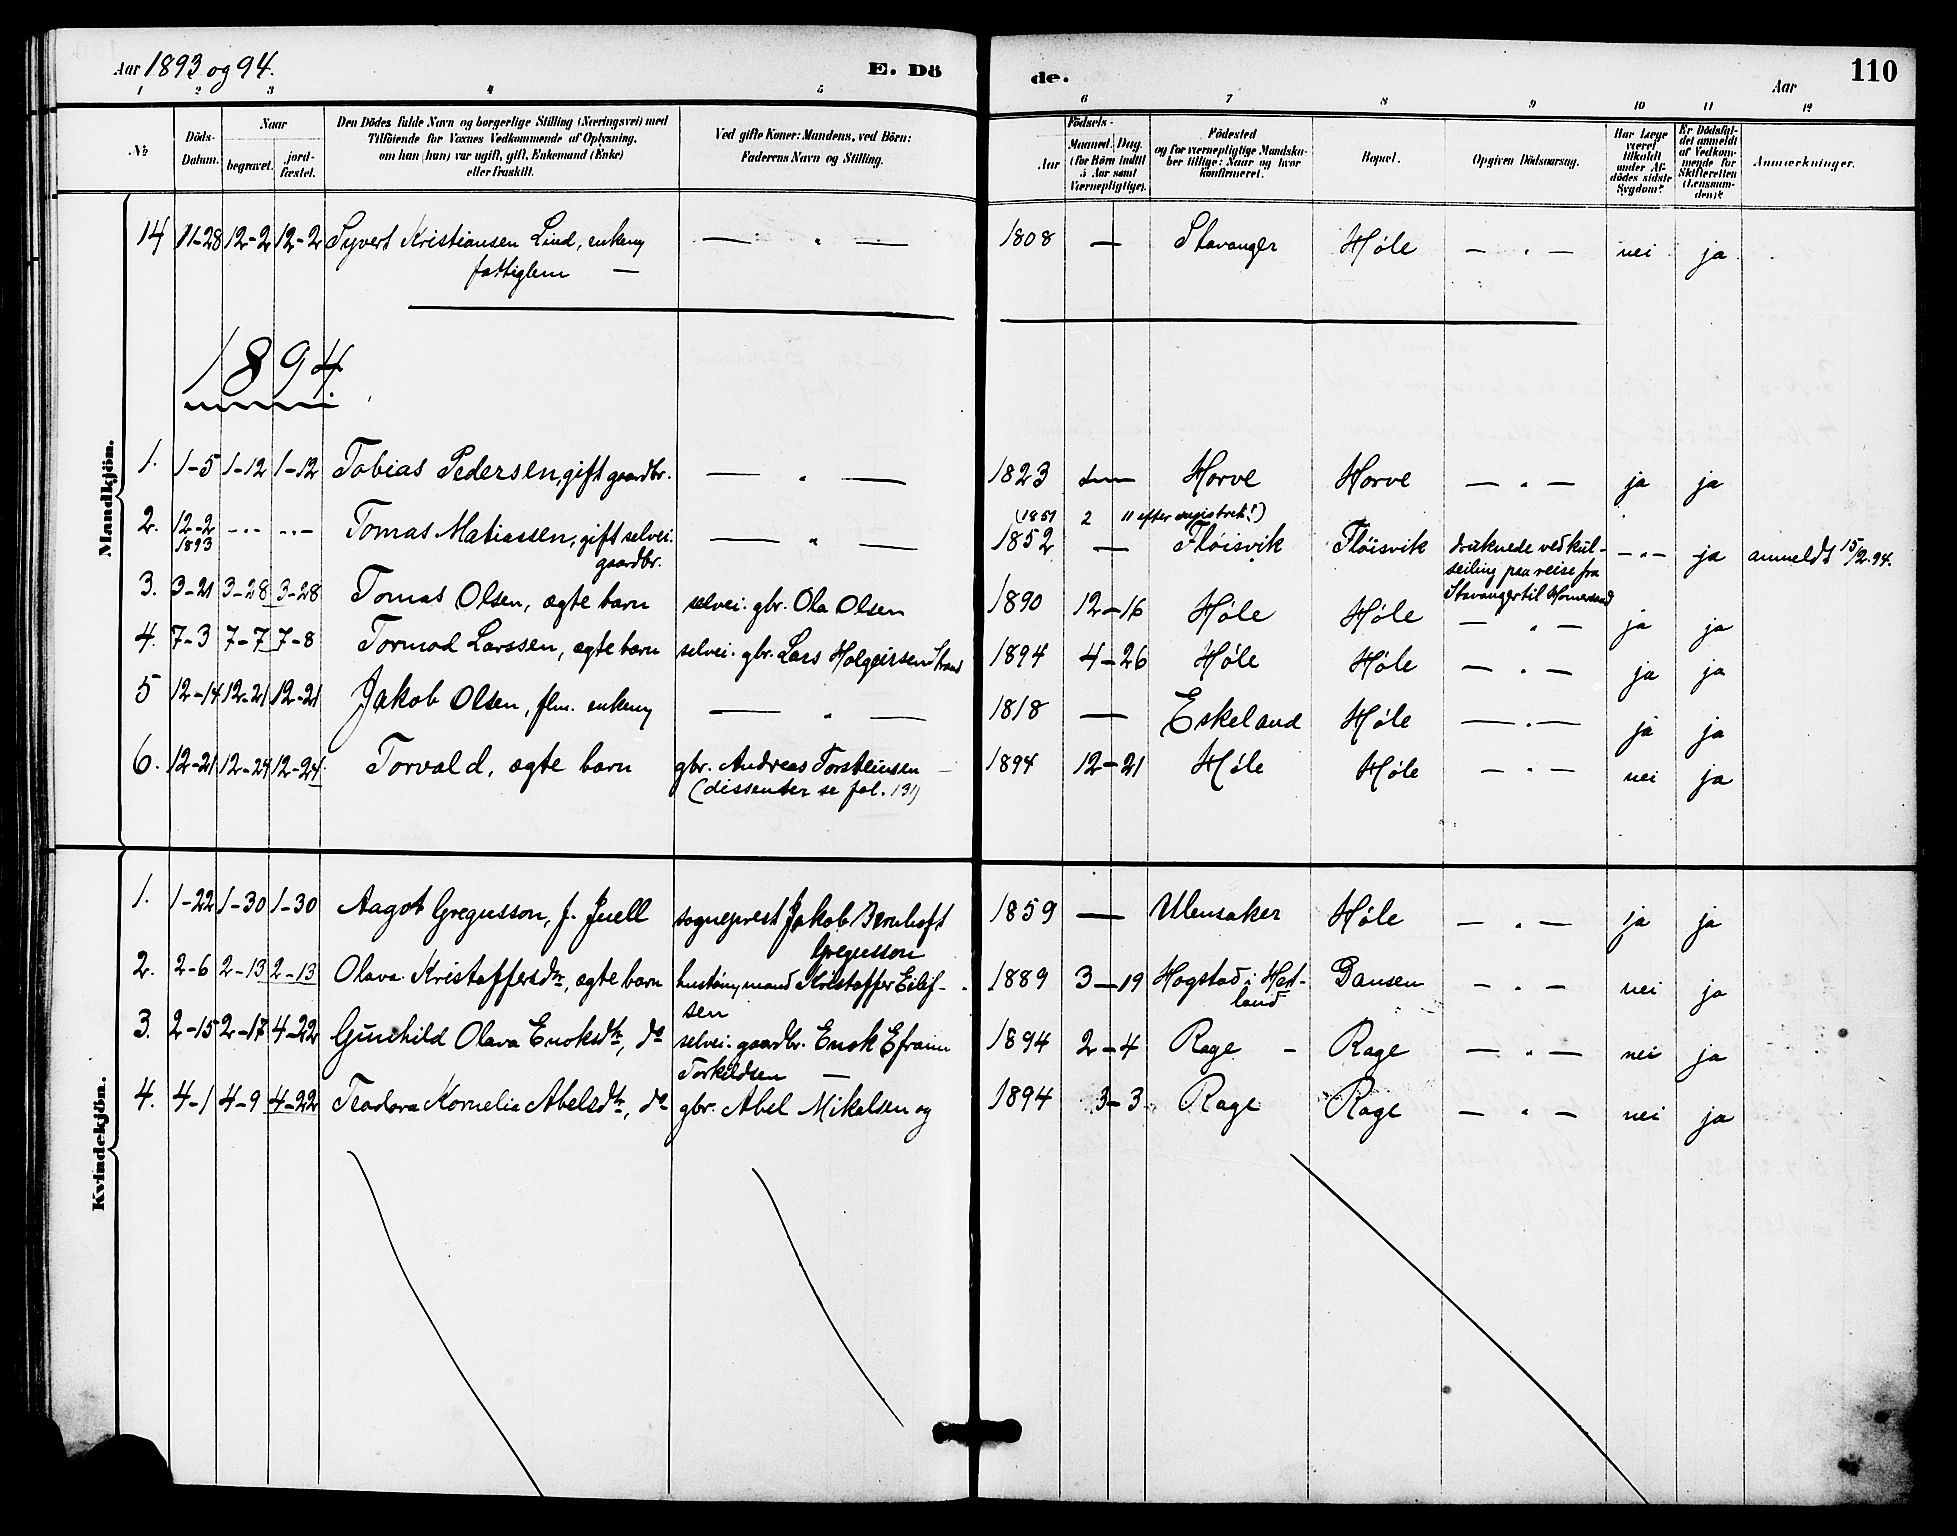 Aar 1893 og 94.
E. Dö
de.
Aar
110
1 2 3 4 5 6 7 8 9 10 11 12
No
Döds-
Datum.
Naar
begravet.
jord-
fæstet.
Den Dödes fulde Navn og borgerlige Stilling (Næringsvei) med
Tilföiende for Voxnes Vedkommende af Oplysning,
om han (hun) var ugift, gift, Enkemand (Enke)
eller fraskilt.
Ved gifte Koner: Mandens, ved Börn:
Faderens Navn og Stilling.
Födsels-
Aar
Maaned. Dag.
(for Börn indtil
5 Aar samt
Værnepligtige).
Födested
og for værnepligtige Mandska-
ber tillige: Naar og hvor
konfirmeret.
Bopæl.
Opgiven Dödsaarsag.
Har Læge
været
tilkaldt
under Af-
dödes sidste
Sygdom?
Er Dödsfal-
det anmeldt
af Vedkom-
mende for
Skifteretten
(Lensman-
den)?
Anmærkninger.
Mandkjön.
14 11-28 12-2 12-2 Syvert Kristiansen Lind, enkem — " — 1808 — Stavanger Høle — " — nei ja
fattiglem —
1894
1. 1-5 1-12 1-12 Tobias Pedersen, gift gaardbr. — " — 1823 Horve Horve — " — ja ja
(1851 2 11 efter registret!)
2. 12-2 -..- -..- Tomas Matiassen, gift selvei. — " — 1852 — Fløisvik Fløisvik druknede ved kul- — " — ja anmeldt 15/2.94.
1893 gaardbr. seiling paa reise fra
Stavanger til
3. 3-21 3-28 3-28 Tomas Olsen, ægte barn selvei. gbr. Ola Olsen 1890 12-16 Høle Høle — " — ja ja
4. 7-3 7-7 7-8 Tormod Larssen, ægte barn selvei. gbr. Lars Holgeirsen 1894 4-26 Høle Høle — " — ja ja
5 12-14 12-21 12-21 Jakob Olsen, flm. enkem — " — 1818 — Eskeland Høle — " — ja ja
6. 12-21 12-24 12-24 Torvald, ægte barn gbr. Andreas Torsteinsen 1894 12-21 Høle Høle — " — nei ja
(dissenter se fol. 131)
Kvindekjön.
1. 1-22 1-30 1-30 Aagot Gregusson, f. Juell sogneprest Jakob Bernhoft 1859 — Ulensaker Høle — " — ja ja
Gregusson
2. 2-6 2-13 2-13 Olava Kristoffersdtr, ægte barn husmand Kristoffer Eilif- 1889 3-19 Hogstad i Het- Dansen — " — nei ja
sen land
3. 2-15 2-17 4-22 Gunhild Olava Enoksdtr, do selvei. gaardbr. Enok Efraim 1894 2-4 Rage — Rage — " — nei ja
Torkildsen —
4. 4-1 4-9 4-22 Teodora Kornelia Abelsdtr, do gbr. Abel Mikalsen og 1894 3-3 Rage Rage — " — nei ja